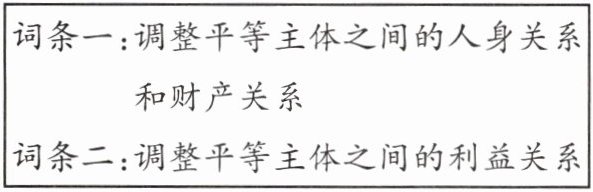 词条一:调整平等主体之间的人身关系
和财产关系
词条二:调整平等主体之间的利益关系